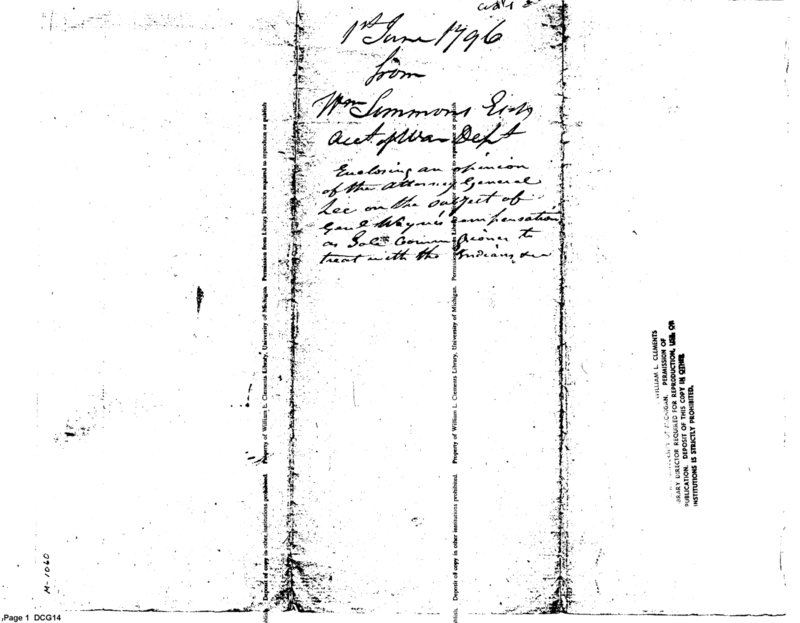 1st June 1796
from
Wm Simmons Esqr
Acct of War Dept
Enclosing an opinion
of the Attorney General
Lee on the subject of
Genl Wayne's compensation
as Sole Commissioner to
treat with the Indians &ca
Property of William L. Clements Library, University of Michigan. Permission from Library Director required to reproduce or publish
Deposit of copy in other institutions prohibited.
Property of William L. Clements Library, University of Michigan.
Deposit of copy in other institutions prohibited.
WILLIAM L. CLEMENTS
PERMISSION OF
LIBRARY DIRECTOR REQUIRED FOR REPRODUCTION, USE OR
PUBLICATION. DEPOSIT OF THIS COPY IN OTHER
INSTITUTIONS IS STRICTLY PROHIBITED.
M-1060
Page 1 DCG14